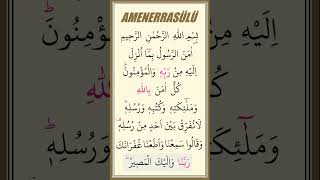 AMENERRASÜLÜ
بِسْمِ اللهِ الرَّحْمٰنِ الرَّحِيمِ
اٰمَنَ الرَّسُولُ بِمَٓا اُنْزِلَ
اِلَيْهِ مِنْ رَبِّهٖ وَالْمُؤْمِنُونَۜ
كُلٌّ اٰمَنَ بِاللهِ
وَمَلٰٓئِكَتِهٖ وَكُتُبِهٖ وَرُسُلِهٖۜ
لَانُفَرِّقُ بَيْنَ اَحَدٍ مِنْ رُسُلِهٖ۠
وَقَالُوا سَمِعْنَا وَاَطَعْنَا غُفْرَانَكَ
رَبَّنَا وَاِلَيْكَ الْمَصِيرُ